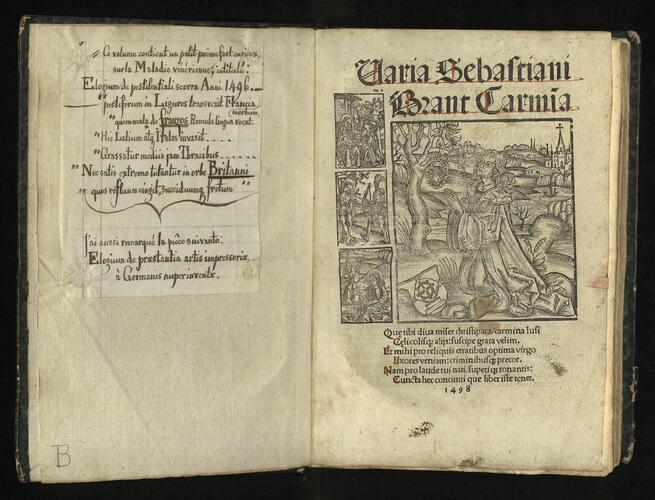 " Ce volume contient un petit poëme fort curieux,
sur la Maladie vénérienne; intitulé:
Elogium de pestilentiali scorra Anni 1496.
" pestiferum in Ligures transvexit Francia
mortum,
" quem mala de franzos Romula lingua vocat.
" Hic Latium atq Italos invasit
" Grassatur mediis jam Thracibus
" Nec satis extremo tutantur in orbe Britanni
" quos refluum cingit, succiduumq fretum "
J'ai aussi remarqué la pièce suivante:
Elogium de præstantia artis impressoriæ
à Germanis nuper inventæ.
B
Varia Sebastiani
Brant Carmina
Que tibi diua miser christipara/carmina lusi
Celicolisq alijs: suscipe grata velim.
Et mihi pro reliquis erratibus optima virgo
Exores veniam: criminibusq precor.
Nam pro laude tui nati/superi q tonantis:
Cuncta hec concinui que liber iste tenet.
1498